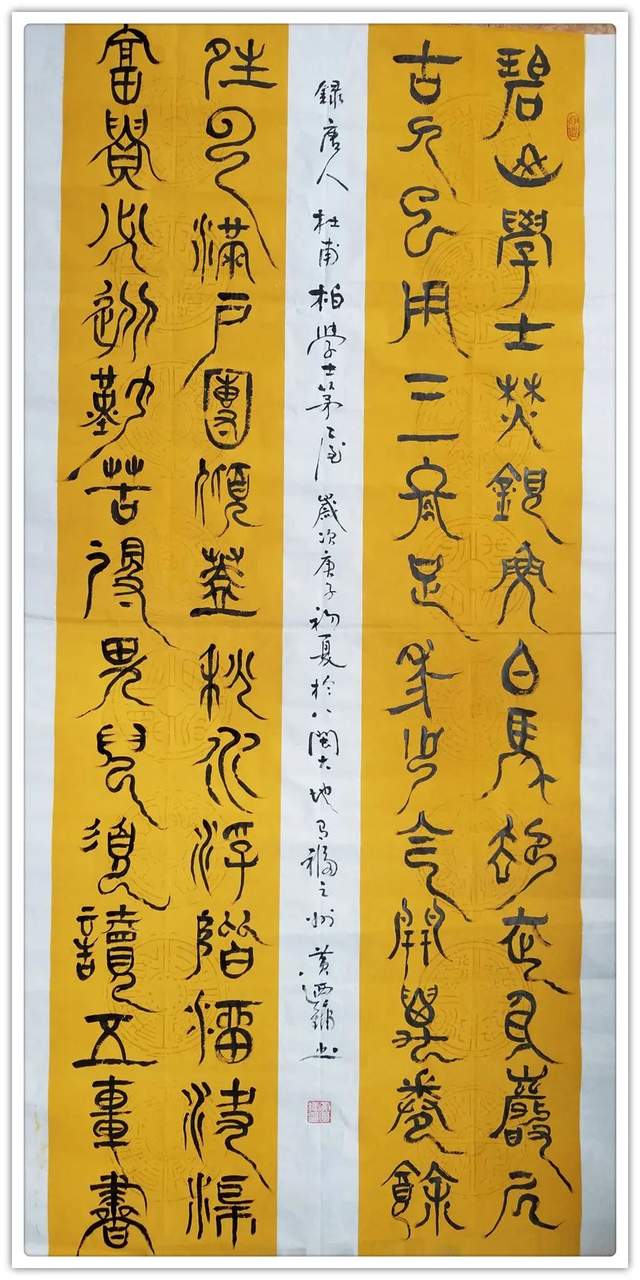 碧山學士焚銀魚白馬卻走身巖居
古人已用三冬足年少今開萬卷餘
晴雲滿戶團傾蓋秋水浮階溜決渠
富貴必從勤苦得男兒須讀五車書
錄唐人杜甫柏學士茅屋歲次庚子初夏於八閩大地有福之州黃迺書